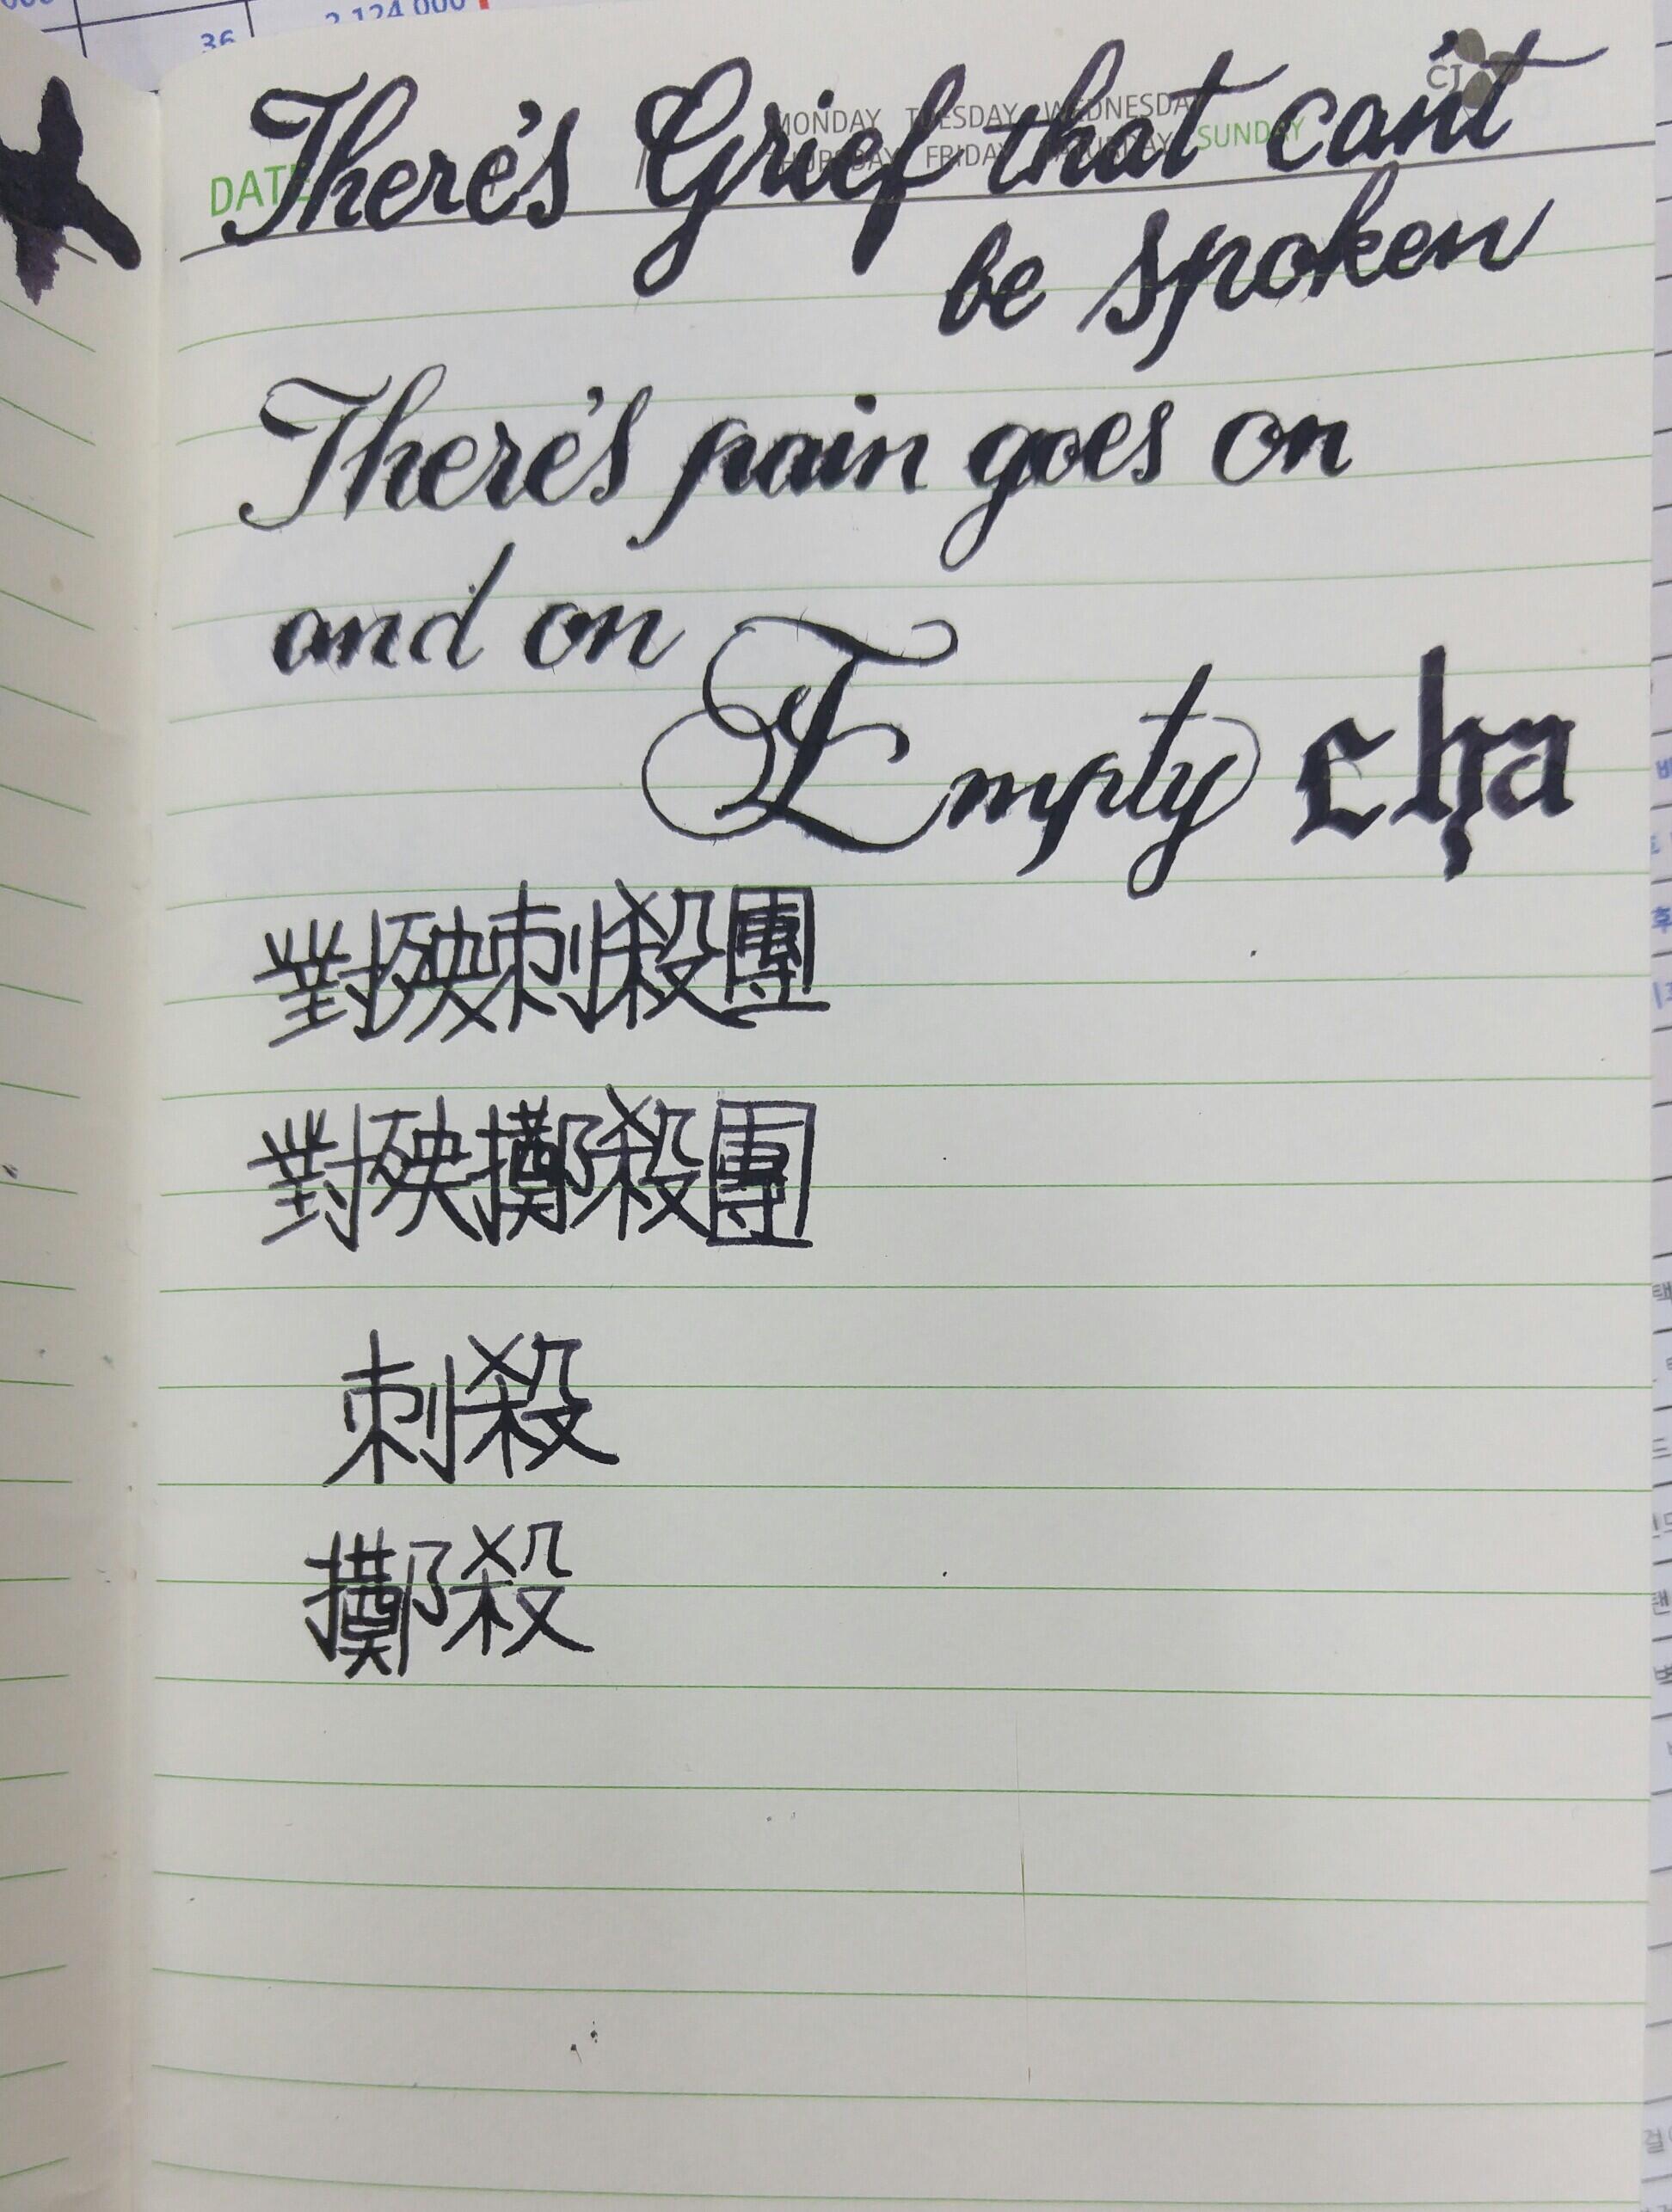 36 2,124,000
CJ
MONDAY TUESDAY WEDNESDAY
THURSDAY FRIDAY SATURDAY SUNDAY
DATE
There's Grief that can't
be spoken
There's pain goes on
and on
Empty cha
對殃刺殺團
對殃擲殺團
刺殺
擲殺